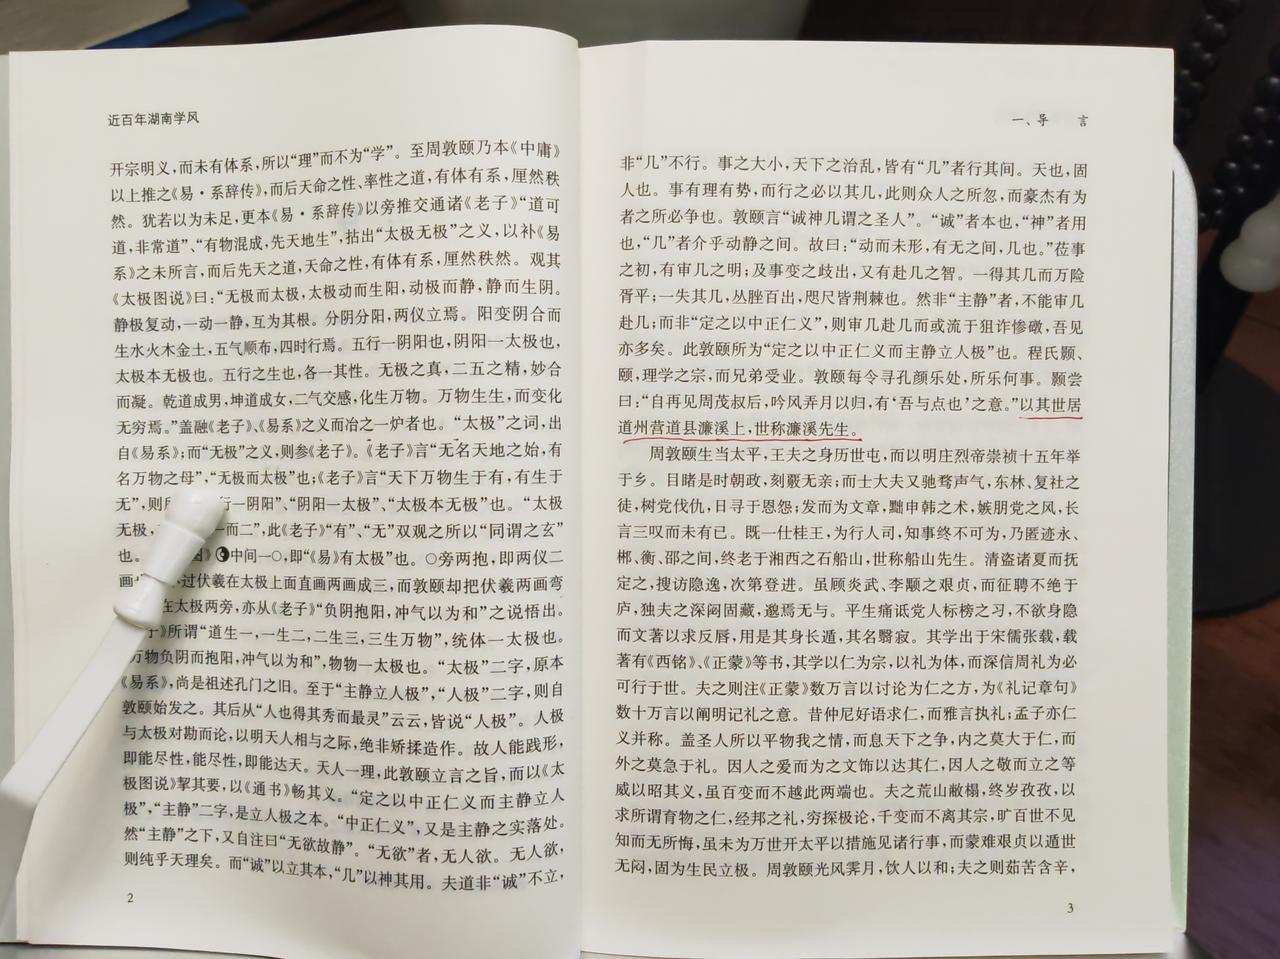 近百年湖南学风
开宗明义，而未有体系，所以“理”而不为“学”。至周敦颐乃本《中庸》
以上推之《易·系辞传》，而后天命之性、率性之道，有体有系，厘然秩
然。犹若以为未足，更本《易·系辞传》以旁推交通诸《老子》“道可
道，非常道”、“有物混成，先天地生”，拈出“太极无极”之义，以补《易
系》之未所言，而后先天之道，天命之性，有体有系，厘然秩然。观其
《太极图说》曰：“无极而太极，太极动而生阳，动极而静，静而生阴。
静极复动，一动一静，互为其根。分阴分阳，两仪立焉。阳变阴合而
生水火木金土，五气顺布，四时行焉。五行一阴阳也，阴阳一太极也，
太极本无极也。五行之生也，各一其性。无极之真，二五之精，妙合
而凝。乾道成男，坤道成女，二气交感，化生万物。万物生生，而变化
无穷焉。”盖融《老子》、《易系》之义而冶之一炉者也。“太极”之词，出
自《易系》；而“无极”之义，则参《老子》。《老子》言“无名天地之始，有
名万物之母”，“无极而太极”也；《老子》言“天下万物生于有，有生于
无”，则 行一阴阳”、“阴阳一太极”、“太极本无极”也。“太极
无极， 一而二”，此《老子》“有”、“无”双观之所以“同谓之玄”
也。 》 中间一○，即“《易》有太极”也。○旁两抱，即两仪二
画 过伏羲在太极上面直画两画成三，而敦颐却把伏羲两画弯
在太极两旁，亦从《老子》“负阴抱阳，冲气以为和”之说悟出。
》所谓“道生一，一生二，二生三，三生万物”，统体一太极也。
万物负阴而抱阳，冲气以为和”，物物一太极也。“太极”二字，原本
《易系》，尚是祖述孔门之旧。至于“主静立人极”，“人极”二字，则自
敦颐始发之。其后从“人也得其秀而最灵”云云，皆说“人极”。人极
与太极对勘而论，以明天人相与之际，绝非矫揉造作。故人能践形，
即能尽性，能尽性，即能达天。天人一理，此敦颐立言之旨，而以《太
极图说》挈其要，以《通书》畅其义。“定之以中正仁义而主静立人
极”，“主静”二字，是立人极之本。“中正仁义”，又是主静之实落处。
然“主静”之下，又自注曰“无欲故静”。“无欲”者，无人欲。无人欲，
则纯乎天理矣。而“诚”以立其本，“几”以神其用。夫道非“诚”不立，
2
一、导　言
非“几”不行。事之大小，天下之治乱，皆有“几”者行其间。天也，固
人也。事有理有势，而行之必以其几，此则众人之所忽，而豪杰有为
者之所必争也。敦颐言“诚神几谓之圣人”。“诚”者本也，“神”者用
也，“几”者介乎动静之间。故曰：“动而未形，有无之间，几也。”莅事
之初，有审几之明；及事变之歧出，又有赴几之智。一得其几而万险
胥平；一失其几，丛脞百出，咫尺皆荆棘也。然非“主静”者，不能审几
赴几；而非“定之以中正仁义”，则审几赴几而或流于狙诈惨礉，吾见
亦多矣。此敦颐所为“定之以中正仁义而主静立人极”也。程氏颢、
颐，理学之宗，而兄弟受业。敦颐每令寻孔颜乐处，所乐何事。颢尝
曰：“自再见周茂叔后，吟风弄月以归，有‘吾与点也’之意。”以其世居
道州营道县濂溪上，世称濂溪先生。
周敦颐生当太平，王夫之身历世屯，而以明庄烈帝崇祯十五年举
于乡。目睹是时朝政，刻覈无亲；而士大夫又驰骛声气，东林、复社之
徒，树党伐仇，日寻于恩怨；发而为文章，黜申韩之术，嫉朋党之风，长
言三叹而未有已。既一仕桂王，为行人司，知事终不可为，乃匿迹永、
郴、衡、邵之间，终老于湘西之石船山，世称船山先生。清盗诸夏而抚
定之，搜访隐逸，次第登进。虽顾炎武、李颙之艰贞，而征聘不绝于
庐，独夫之深闷固藏，邈焉无与。平生痛诋党人标榜之习，不欲身隐
而文著以求反唇，用是其身长遁，其名翳寂。其学出于宋儒张载，载
著有《西铭》、《正蒙》等书，其学以仁为宗，以礼为体，而深信周礼为必
可行于世。夫之则注《正蒙》数万言以讨论为仁之方，为《礼记章句》
数十万言以阐明记礼之意。昔仲尼好语求仁，而雅言执礼；孟子亦仁
义并称。盖圣人所以平物我之情，而息天下之争，内之莫大于仁，而
外之莫急于礼。因人之爱而为之文饰以达其仁，因人之敬而立之等
威以昭其义，虽百变而不越此两端也。夫之荒山敝榻，终岁孜孜，以
求所谓育物之仁，经邦之礼，穷探极论，千变而不离其宗，旷百世不见
知而无所悔，虽未为万世开太平以措施见诸行事，而蒙难艰贞以遁世
无闷，固为生民立极。周敦颐光风霁月，饮人以和；夫之则茹苦含辛，
3